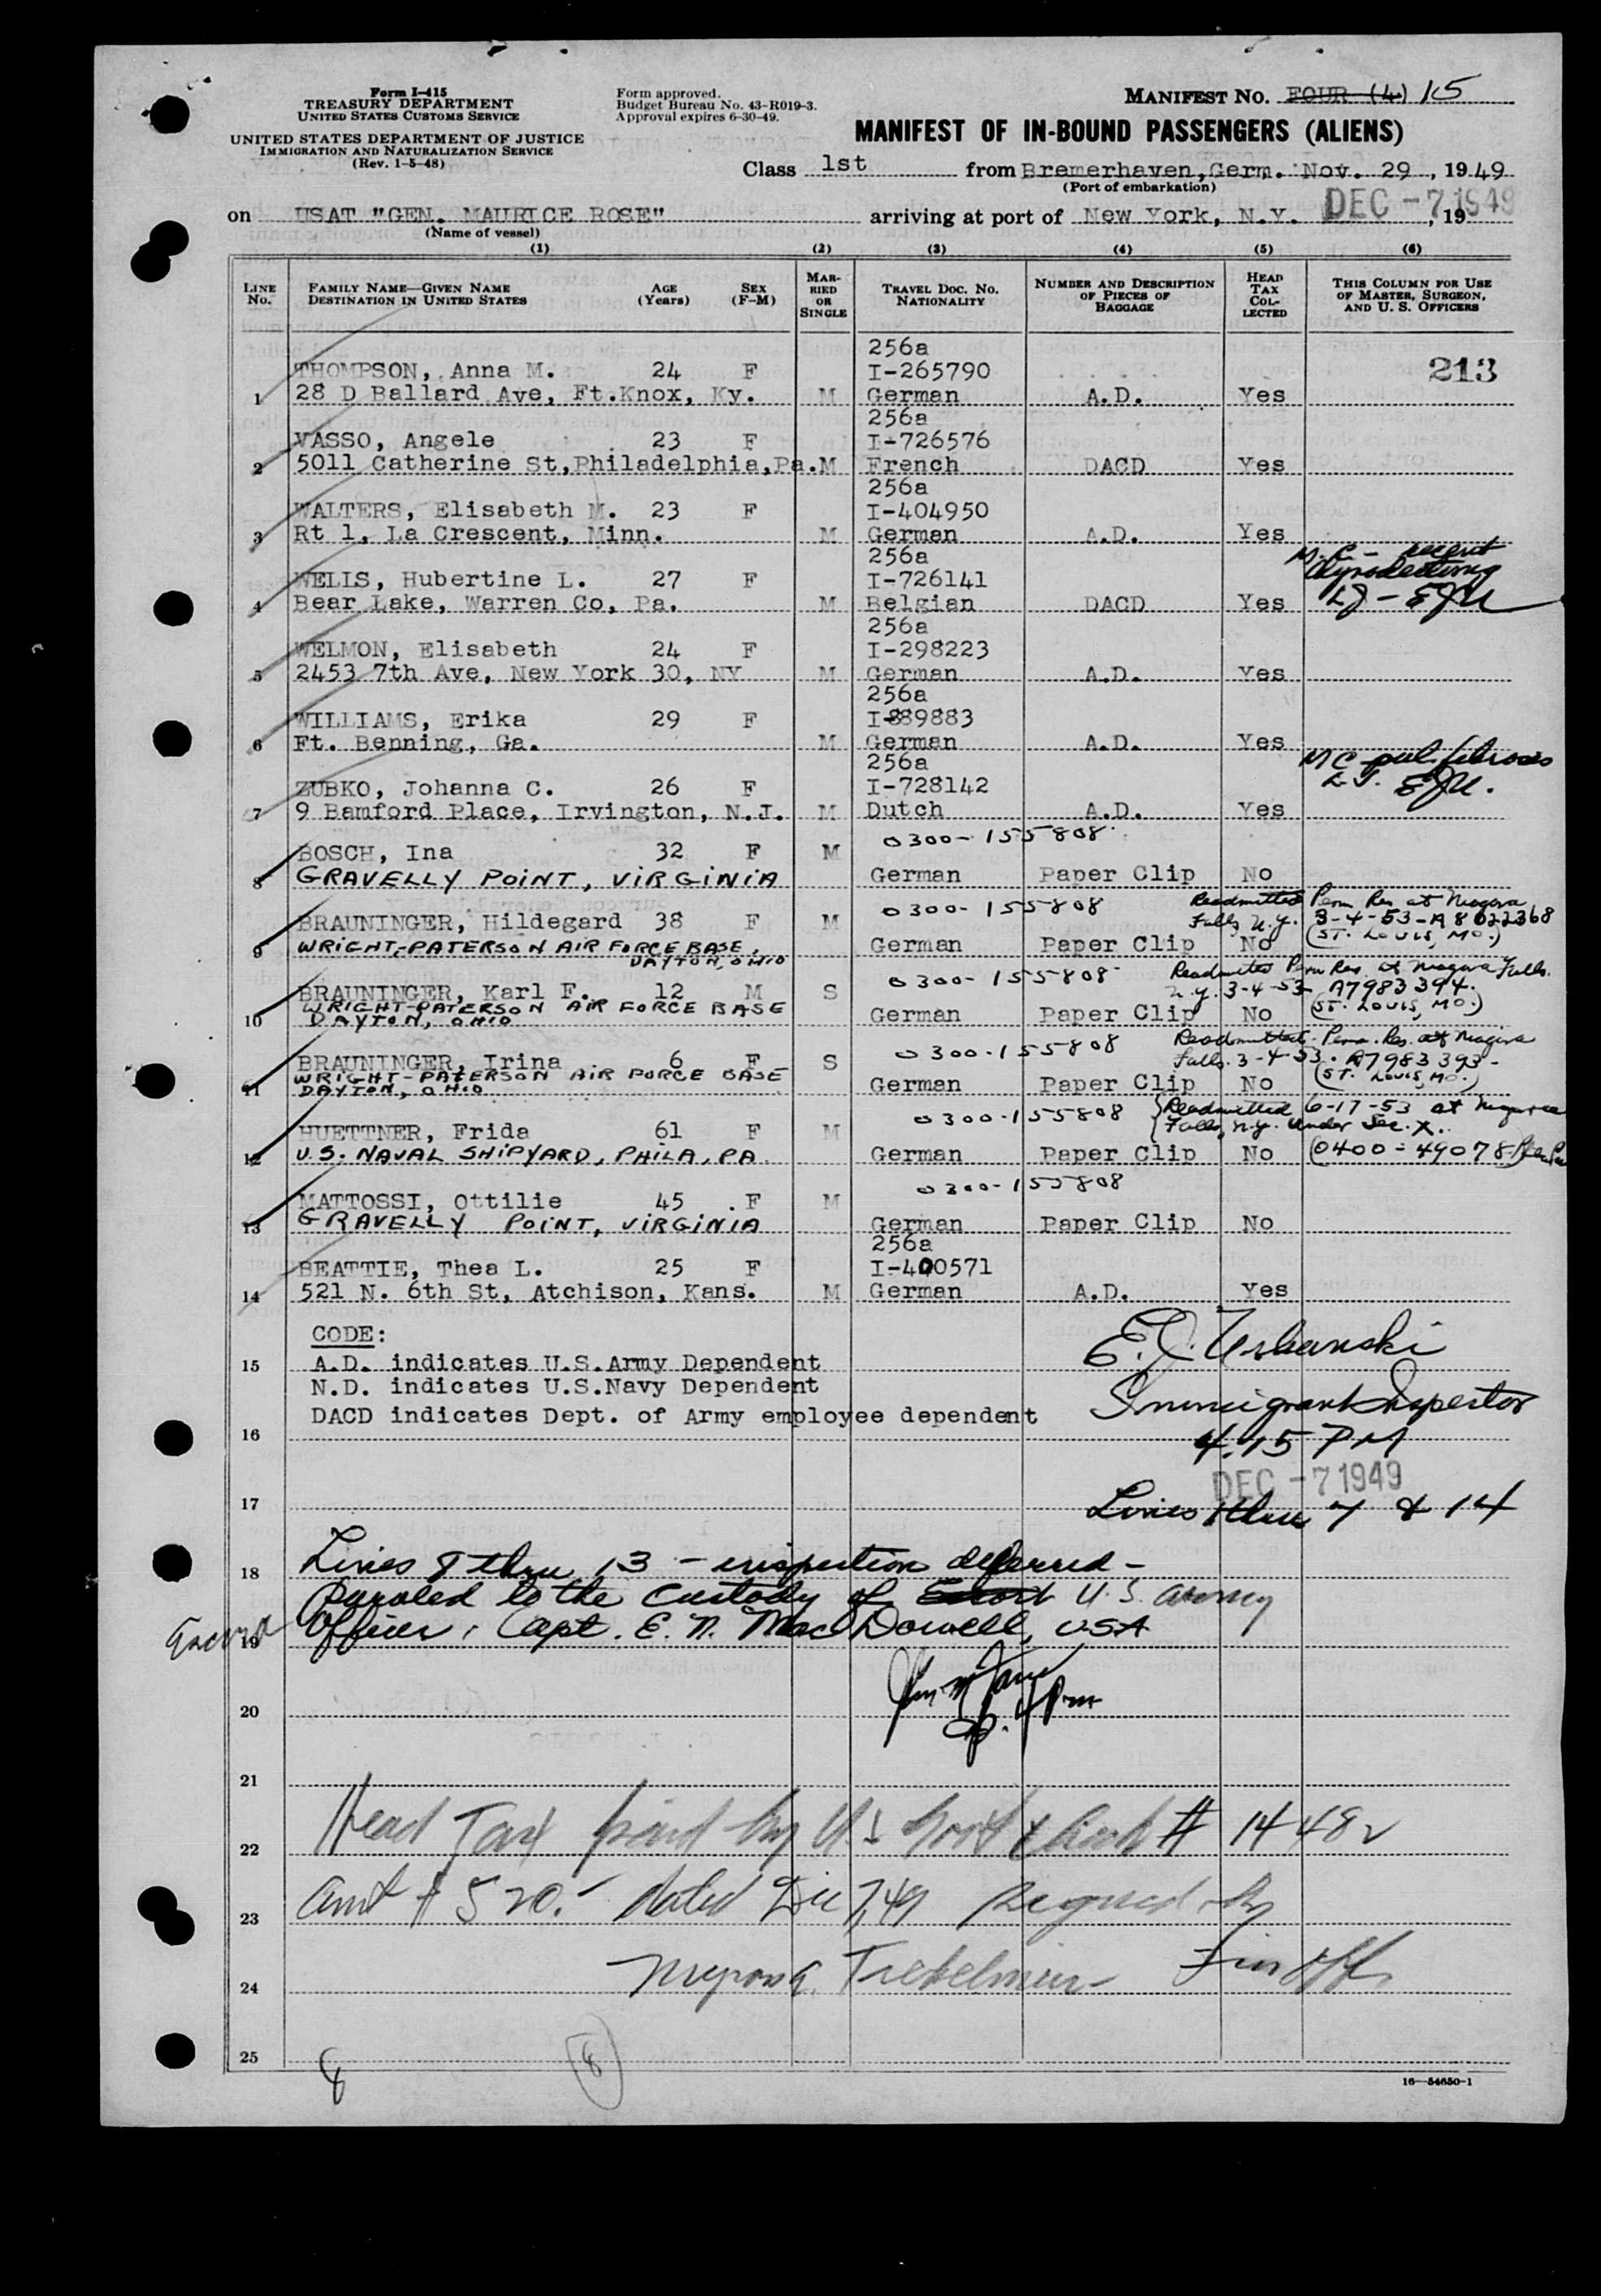 Form I-415
TREASURY DEPARTMENT
UNITED STATES CUSTOMS SERVICE
UNITED STATES DEPARTMENT OF JUSTICE
IMMIGRATION AND NATURALIZATION SERVICE
(Rev. 1-5-48)
Form approved.
Budget Bureau No. 43-R019-3.
Approval expires 6-30-49.
MANIFEST NO. FOUR (4) 15
MANIFEST OF IN-BOUND PASSENGERS (ALIENS)
Class 1st from Bremerhaven, Germ. Nov. 29, 1949
(Port of embarkation)
on USAT "GEN. MAURICE ROSE" arriving at port of New York, N.Y. DEC -7 1949, 19
(Name of vessel)
(1) (2) (3) (4) (5) (6)
LINE No. FAMILY NAME—GIVEN NAME DESTINATION IN UNITED STATES AGE (Years) SEX (F-M) MARRIED OR SINGLE TRAVEL DOC. NO. NATIONALITY NUMBER AND DESCRIPTION OF PIECES OF BAGGAGE HEAD TAX COLLECTED THIS COLUMN FOR USE OF MASTER, SURGEON, AND U. S. OFFICERS
256a
THOMPSON, Anna M. 24 F I-265790 213
1 28 D Ballard Ave, Ft.Knox, Ky. M German A.D. Yes
256a
VASSO, Angele 23 F I-726576
2 5011 Catherine St,Philadelphia,Pa. M French DACD Yes
256a
WALTERS, Elisabeth M. 23 F I-404950
3 Rt 1, La Crescent, Minn. M German A.D. Yes
256a M.C. - recent
WELIS, Hubertine L. 27 F I-726141
4 Bear Lake, Warren Co, Pa. M Belgian DACD Yes LJ - EJU
256a
WELMON, Elisabeth 24 F I-298223
5 2453 7th Ave, New York 30, NY M German A.D. Yes
256a
WILLIAMS, Erika 29 F I-889883
6 Ft. Benning, Ga. M German A.D. Yes
256a MC pul. fibrosis
ZUBKO, Johanna C. 26 F I-728142 EJU.
7 9 Bamford Place, Irvington, N.J. M Dutch A.D. Yes
BOSCH, Ina 32 F M 0300-155808
8 GRAVELLY POINT, VIRGINIA German Paper Clip No
BRAUNINGER, Hildegard 38 F M 0300-155808 Readmitted Perm Res at Niagara Falls N.Y. 3-4-53-A8022368
9 WRIGHT-PATERSON AIR FORCE BASE, DAYTON, OHIO German Paper Clip No (ST. LOUIS, MO.)
BRAUNINGER, Karl F. 12 M S 0300-155808 Readmitted Perm Res at Niagara Falls. N.Y. 3-4-53 A7983394.
10 WRIGHT-PATERSON AIR FORCE BASE DAYTON, OHIO German Paper Clip No (ST. LOUIS, MO.)
BRAUNINGER, Irina 6 F S 0300-155808 Readmitted Perm. Res. at Niagara Falls. 3-4-53. A7983393-
11 WRIGHT-PATERSON AIR FORCE BASE DAYTON, OHIO German Paper Clip No (ST. LOUIS, MO.)
HUETTNER, Frida 61 F M 0300-155808 Readmitted 6-17-53 at Niagara Falls, N.Y. under Sec. X.
12 U.S. NAVAL SHIPYARD, PHILA, PA. German Paper Clip No (0400-49078
MATTOSSI, Ottilie 45 F M 0300-155808
13 GRAVELLY POINT, VIRGINIA German Paper Clip No
256a
BEATTIE, Thea L. 25 F I-400571
14 521 N. 6th St, Atchison, Kans. M German A.D. Yes
CODE: E. J. Urbanski
15 A.D. indicates U.S.Army Dependent
N.D. indicates U.S.Navy Dependent
DACD indicates Dept. of Army employee dependent Immigrant Inspector
16 4.15 PM
DEC -7 1949
17 Lines 1 thru 7 & 14
18 Lines 8 thru 13 - inspection deferred -
paroled to the custody of Escort U.S. army
Escort 19 Officer, Capt. E. N. MacDowell, USA
20
21
22 Head Tax paid by U.S. Govt check # 14482
23 Amt $520.- dated Dec 7, 49 signed by
24 Fin Off.
25
8 8
16—54650-1